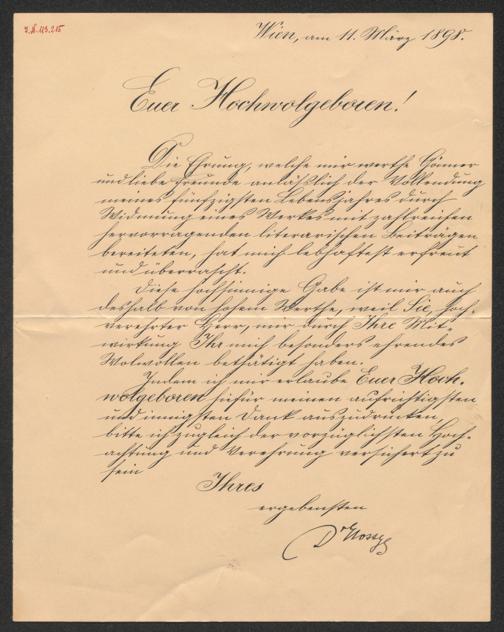 J.N. 113.215
Wien, am 11. März 1898.
Euer Hochwolgeboren!
Die Ehrung, welche mir werthe Gönner
und liebe Freunde anläßlich der Vollendung
meines fünfzigsten Lebensjahres durch
Widmung eines Werkes mit zahlreichen
hervorragenden literarischen Beiträgen
bereiteten, hat mich lebhaftest erfreut
und überrascht.
Diese hochsinnige Gabe ist mir auch
deshalb von hohem Werthe, weil Sie, hoch-
verehrter Herr, nur durch Ihre Mit-
wirkung Ihr mich besonders ehrendes
Wolwollen bethätigt haben.
Indem ich mir erlaube Euer Hoch-
wolgeboren hiefür meinen aufrichtigsten
und innigsten Dank auszudrücken,
bitte ich zugleich der vorzüglichsten Hoch-
achtung und Verehrung versichert zu
sein
Ihres
ergebensten
Dr